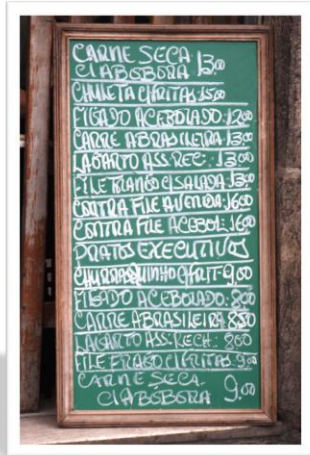 CARNE SECA
C/ABOBORA 13.00
CHULETA C/FRITAS 15.00
FIGADO ACEBOLADO: 12.00
CARRE ABRASILEIRA 13.00
LAGARTO ASS. REC: 13.00
FILE FRANGO C/SALADA 13.00
CONTRA FILE AVENIDA: 16.00
CONTRA FILE ACEBOL: 16.00
PRATOS EXECUTIVOS
CHURRASQUINHO C/FRIT- 9,00
FIGADO ACEBOLADO: 8,00
CARRE ABRASILEIRA: 8,50
LAGARTO ASS. RECH: 8,00
FILE FRAGO C/FRITAS 9,00
CARNE SECA-
C/ABOBORA 9.00